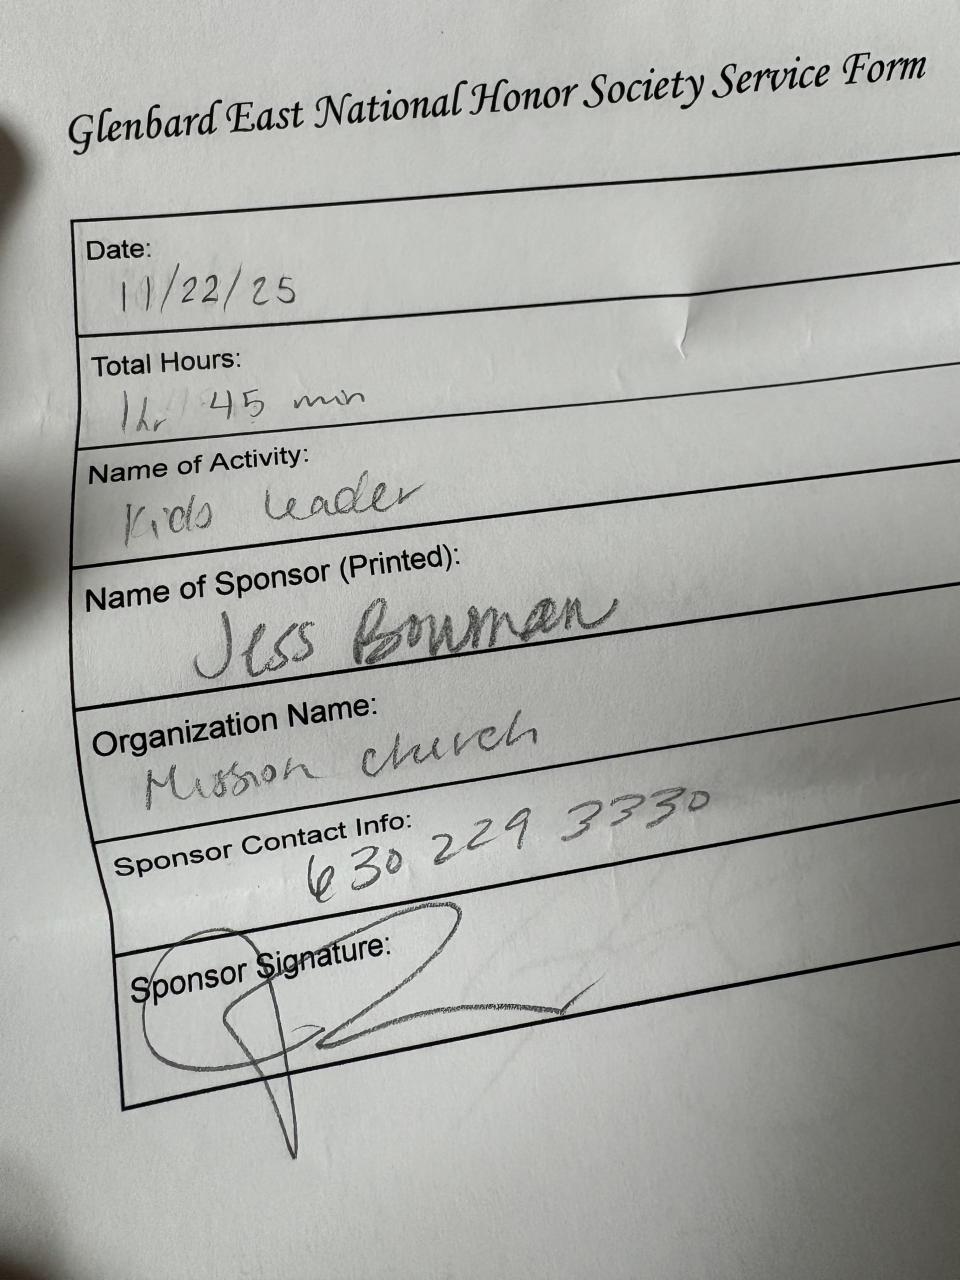 Glenbard East National Honor Society Service Form
Date:
11/22/25
Total Hours:
1hr 45 min
Name of Activity:
Kids Leader
Name of Sponsor (Printed):
Jess Bowman
Organization Name:
Mission church
Sponsor Contact Info:
630 229 3330
Sponsor Signature: